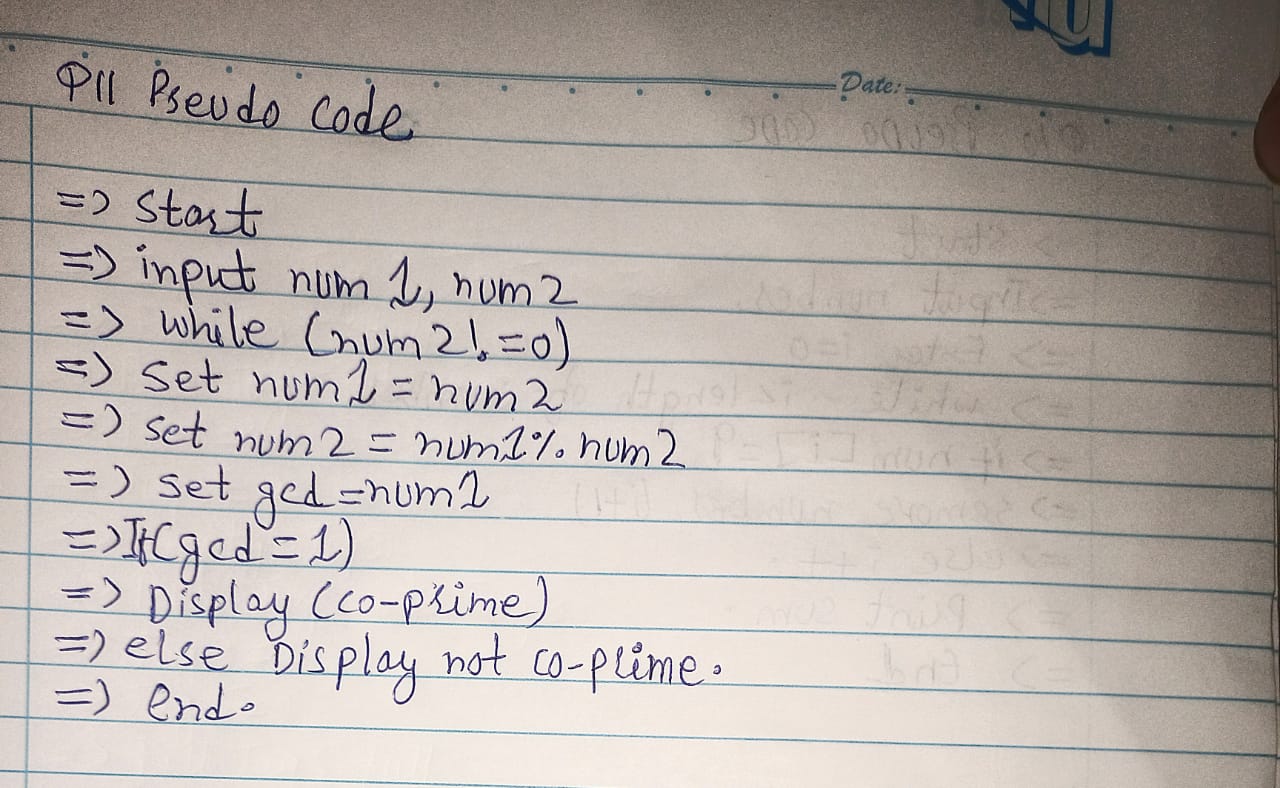 Q11 Pseudo code
Date:
=> Start
=> input num 1, num2
=> while (num2!=0)
=> set num1 = num2
=> set num2 = num1% num2
=> set gcd =num1
=> If(gcd=1)
=> Display (co-prime)
=> else Display not co-prime.
=> end.